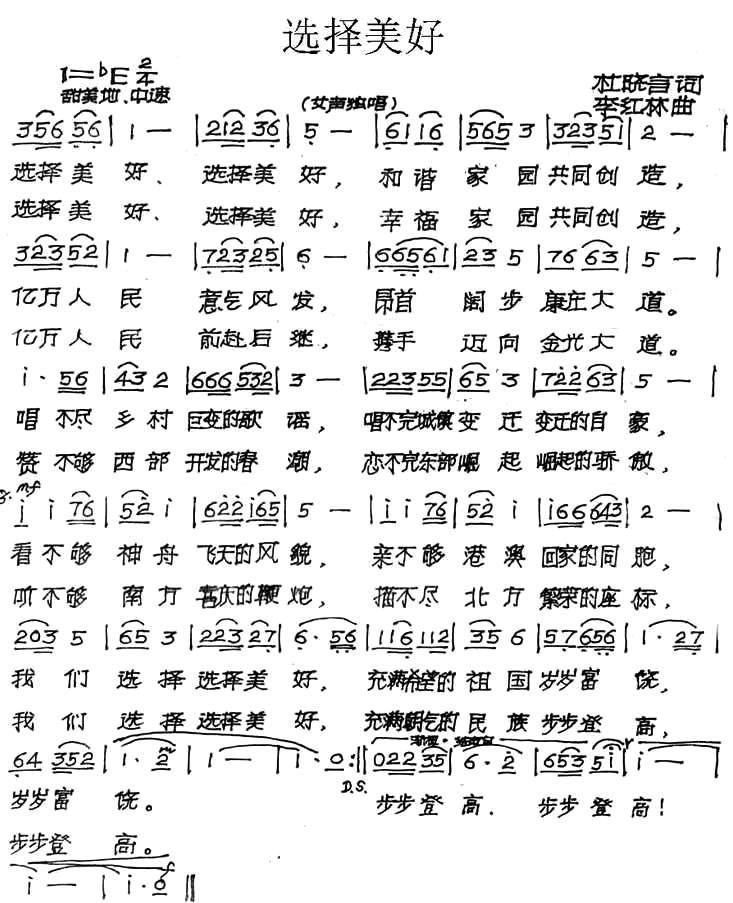 选择美好
1=♭E 2/4
杜晓言词
甜美地、中速
(女声独唱)
李红林曲
356 56 | 1 — | 212 36 | 5 — | 61 16 | 565 3 | 323 51 | 2 — |
选择美 好、 选择美 好, 和谐 家 园共同创 造,
选择美 好、 选择美 好, 幸福 家 园共同创 造,
323 52 | 1 — | 723 25 | 6 — | 66561 | 23 5 | 76 63 | 5 — |
亿万人 民 意气风 发, 昂首 阔步 康庄大 道。
亿万人 民 前赴后 继, 携手 迈向 金光大 道。
i· 56 | 43 2 | 666 532 | 3 — | 223 55 | 65 3 | 722 63 | 5 — |
唱 不尽 乡村 巨变的歌 谣, 唱不完城镇变 迁 变迁的自 豪,
赞 不够 西部 开发的春 潮, 恋不完东部崛 起 崛起的骄 傲,
mf
i i 76 | 52 i | 622 i65 | 5 — | i i 76 | 52 i | i66 643 | 2 — |
看不够 神舟 飞天的风 貌, 亲不够 港澳 回家的同 胞,
听不够 南方 喜庆的鞭 炮, 描不尽 北方 繁荣的座 标,
203 5 | 65 3 | 223 27 | 6· 56 | 116 112 | 35 6 | 57 656 | 1· 27 |
我们 选择 选择美 好, 充满希望的 祖国 岁岁富 饶,
我们 选择 选择美 好, 充满朝气的 民族 步步登 高,
64 352 | 1· 2 | 1 — | i· 0 :‖ 022 35 | 6· 2 | 653 5i | i — |
D.S.
岁岁富 饶。 步步登 高. 步步登 高!
步步登 高。
f
i — | i· 0 ‖